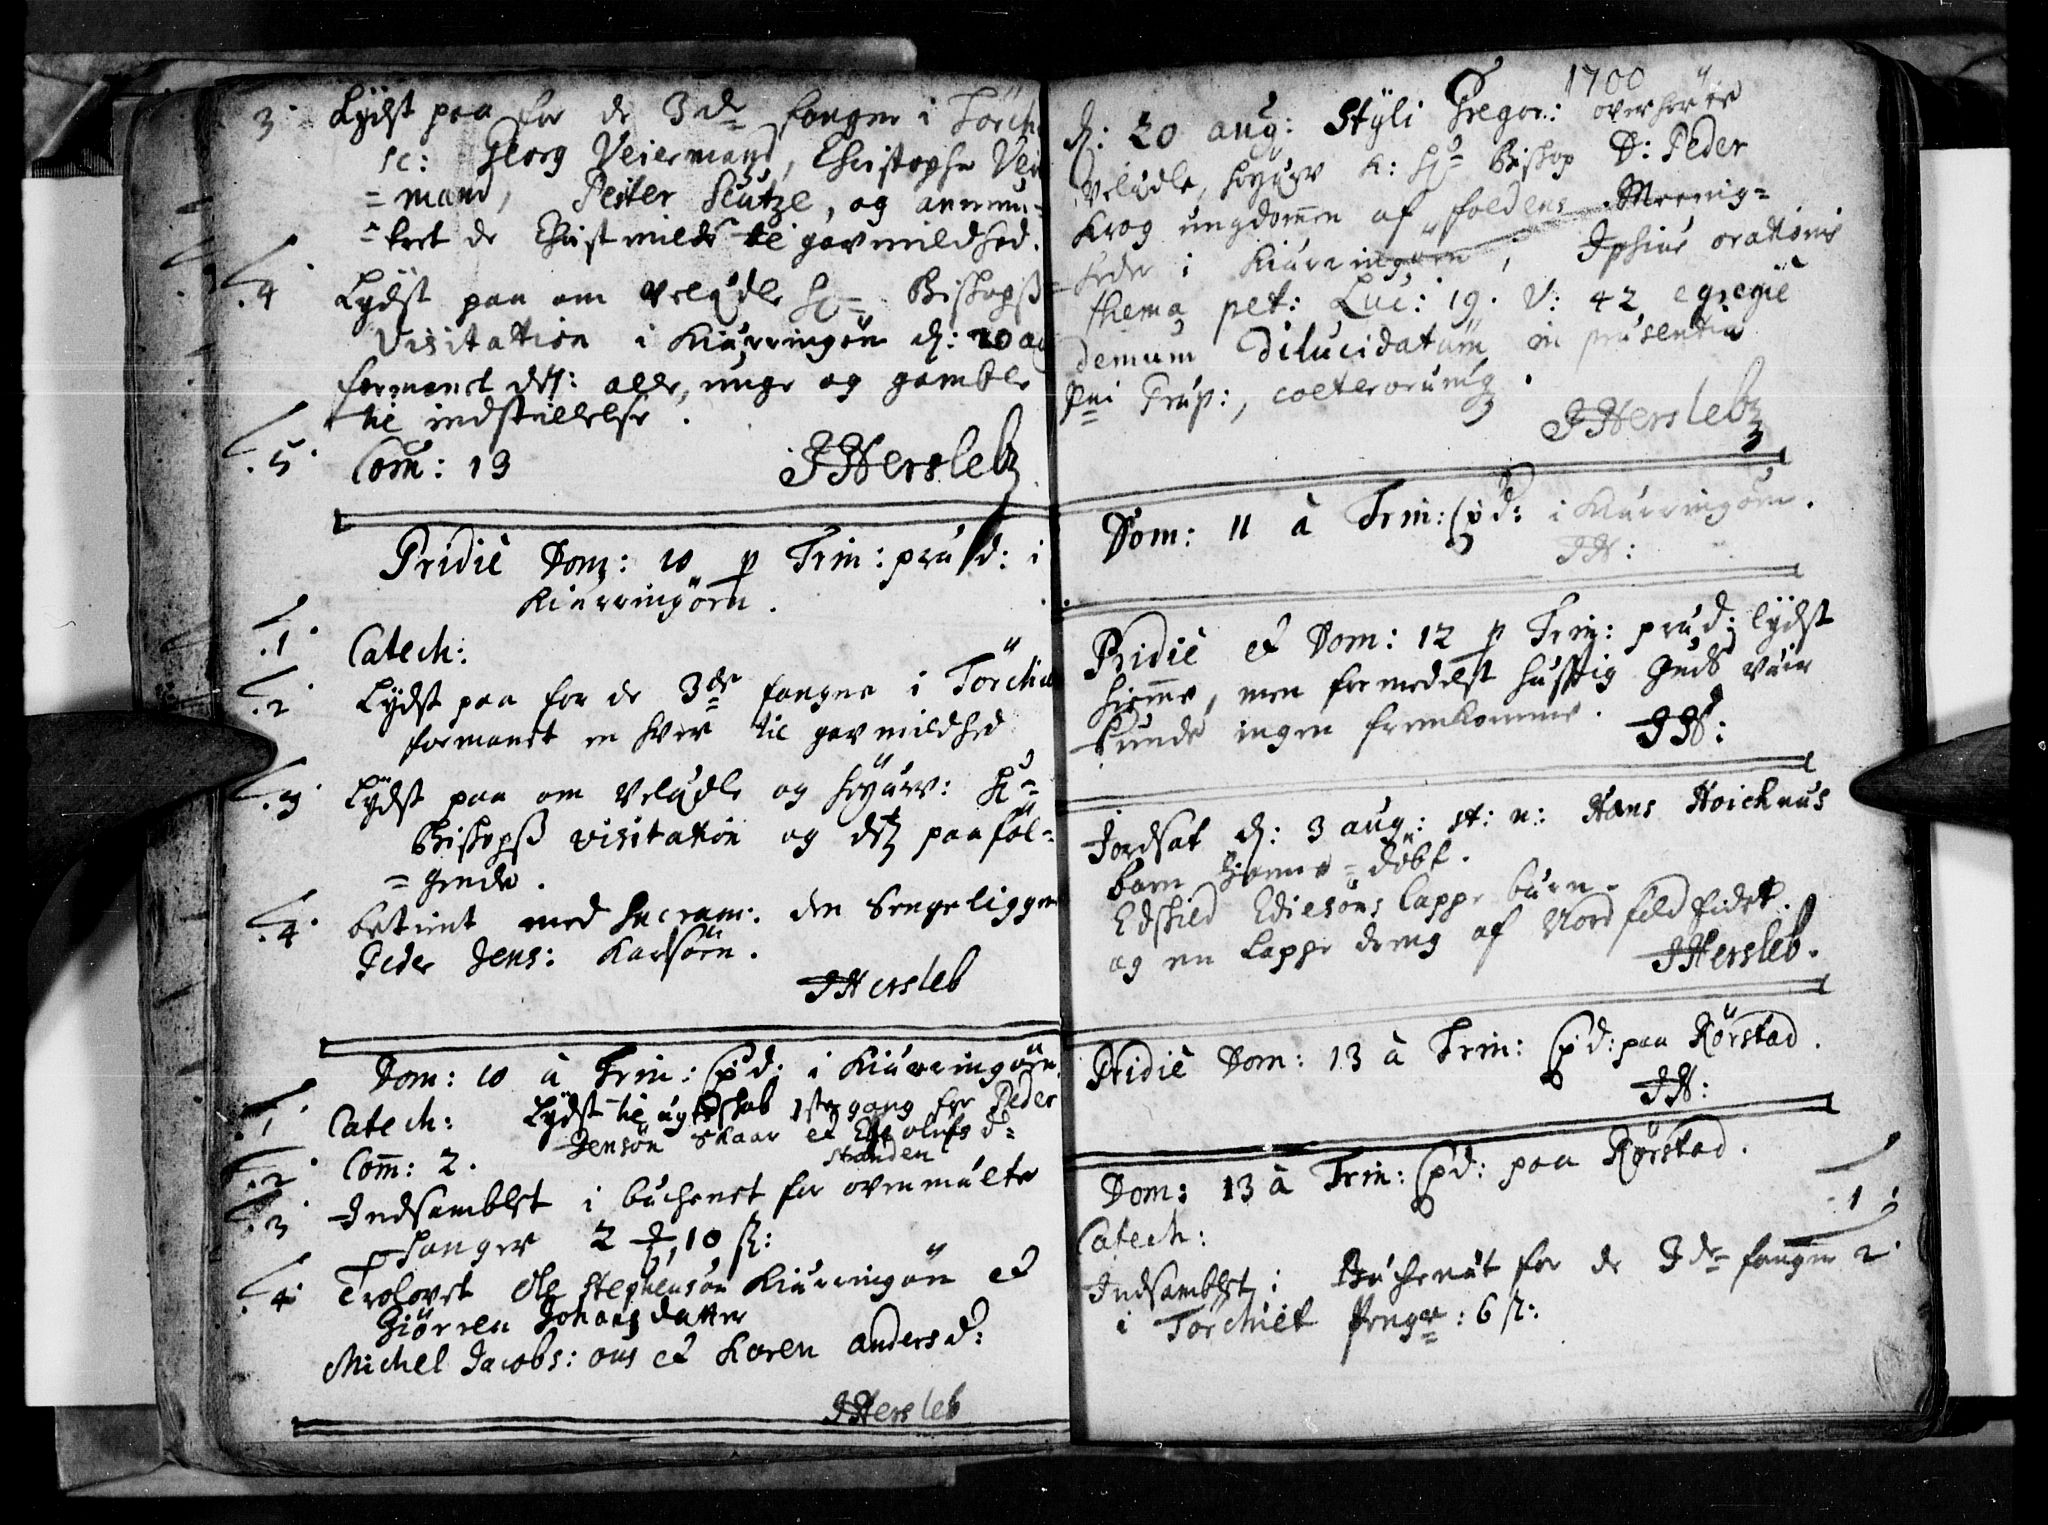 3. Lÿdst paa for de 3de fanger i Törchi
sc: Georg Veiermand, Christopher Vei
=mand, Peiter Scutze, og annmu=
=tret de Christmilde til gavmildhed.
.4. Lÿdst paa om velædle Hr= Bishops
Visitation i Kiærringöen d: 20 au
formanet alle, unge og gamble
til indstillelse.
.5. Com: 13 JHersleb
Pridie Dom: 10 p Trin: præd: i
Kiærringöen.
.1. Catech:
.2. Lÿdst paa for de 3de fanger i Törchi
formanet en hver til gavmildhed
.3. Lÿdst paa om velædle og höyærv: Hr=
Bishops visitation og paaföl=
=gende.
.4. betient med Sacram: den Sengeliggen
Peder Jens: Karlsöen.
JHersleb
Dom: 10 à Trin: Cpd: i Kiærringöen.
.1. Catech: Lÿdst til ægteskab 1ste gang for Peder
Jensön Skaar et Olufs d=
Standen
.2. Com: 2.
.3. Indsamblet i büchenet for ovenmælte
fanger 2 10 ß:
.4. Trolovet Ole Stephensön Kiærringöen et
Giörren Johans datter
Michel Jacobs: ons et Karen Anders d:
JHersleb
1700
d: 20 aug: Stÿli Gregor: overhörte
Velædle, höyærv H: Hr= Bishop D: Peder
Krog ungdommen af Foldens Meenig=
=heder i Kiærringöen, Ipsius orationis
thema pet: Luc: 19. V: 42 egregie
demum dilucidatum in præsentia
Pni Præp:, coeterorumq.
JHersleb
Dom: 11 à Trin: Cpd: i Kiærringöen.
JH:
Pridie et Dom: 12 p Trin: præd: lÿdst
hiemme, men formedelst hastig Guds Veir
kunde ingen fremkomme. JH:
Jordsat d: 3 aug: st: n: Hans Hoicknus
barn hiemme=döbt.
Edskild Ediesöns lappe barn.
og en lappe dreng af Nordfeldfidet.
JHersleb.
Pridie Dom: 13 à Trin: Cpd: paa Rörstad.
JH:
Dom: 13 à Trin: Cpd: paa Rörstad.
Catech: .1.
Indsamblet i Büchenet for de 3de fanger 2.
i Törchiet Penge: 6 ß: